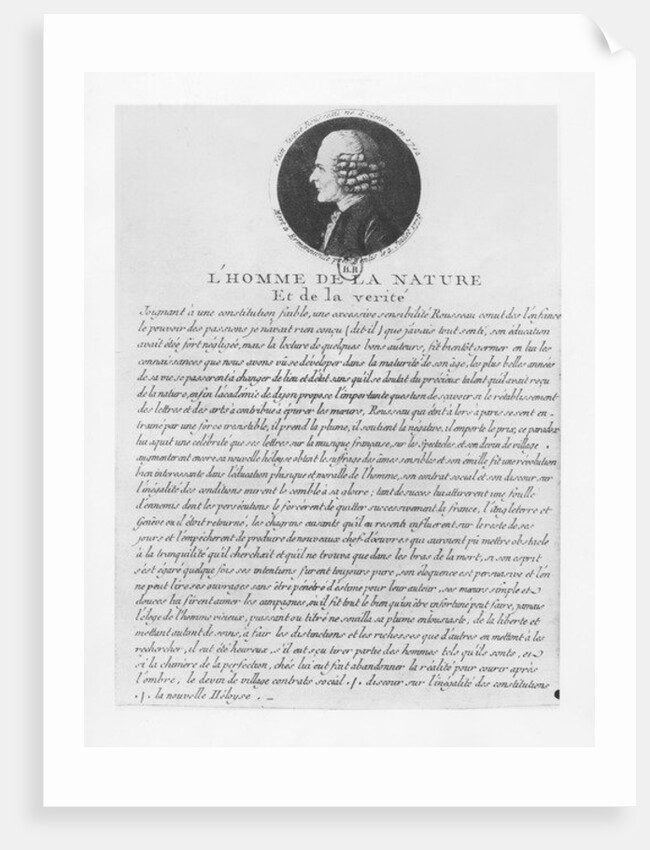 Jean Jaques Rousseau né a Genève en 1712
Mort a Ermenonville le 2 Juillet 1778
B.R
L'HOMME DE LA NATURE
Et de la verité
Joignant à une constitution faible, une excessive sensibilité Rousseau conut des l'enfance
le pouvoir des passions je n'avait rien conçu (dit-il) que j'avais tout senti, son éducation
avait été fort négligeé, mais la lecture de quelques bons auteurs, fit bientôt germer en lui les
connaissances que nous avons vû se déveloper dans la maturité de son âge, les plus belles années
de sa vie se passerent à changer de lieu et d'état sans qu'il se doutat du précieux talant qu'il avait reçu
de la nature, enfin l'académie de dijon propose l'importante question de sçavoir si le rétablissement
des lettres et des arts à contribué à épurer les mœurs, Rousseau qui étnt à lors a paris se sent en-
trainé par une force irresistible, il prend la plume, il soutient la négative, il emporte le prix, ce paradox
lui aquit une célébrité que ses lettres sur la musique française, sur les spectacles, et son devin de village .
augmenterent encore sa nouvelle héloyse obtint le suffrage des âmes sensibles et son émille fit une révolution
bien interessante dans l'éducation phisique et moralle de l'homme, son contrat social et son discour sur
l'inégalité des conditions mirent le comble à sa gloire; tant de succes lui attirerent une foulle
d'ennemis dont les persécutions le forcèrent de quitter successivement la france, l'angleterre et
Genève ou il étoit retourné, les chagrins cuisants qu'il au resenti influerent sur le reste de ses
jours et l'empêcherent de produire de nouveaux chef-d'œuvres qui auronent pû mettre obstacle
à la tranquilité qu'il cherchait et qu'il ne trouva que dans les bras de la mort, si son esprit
s'est égaré quelque fois ses intentions furent toujours pure, son éloquence est persuasive et l'ón
ne peut lire ses ouvrages sans être pénétré d'éstime pour leur auteur, ses mœurs simple et
douses lui firent aimer les campagnes, ou il fit tout le bien qu'un être infortuné peut faire, jamais
l'éloge de l'homme vicieux, puissant ou titré ne souilla sa plume entousiaste, de la liberte et
mettant autant de soins, à fuir les distinctions et les richesses que d'autres en mettent à les
rechercher, il eut été heureux, s'il eut sçu tirer partie des hommes tels qu'ils sonts, et
si la chimère de la perfection, chés lui eut fait abandonner la réalité pour courir après
l'ombre, le devin de village contrats social ./. discour sur l'inégalité des constitutions
./. la nouvelle Héloyse . _